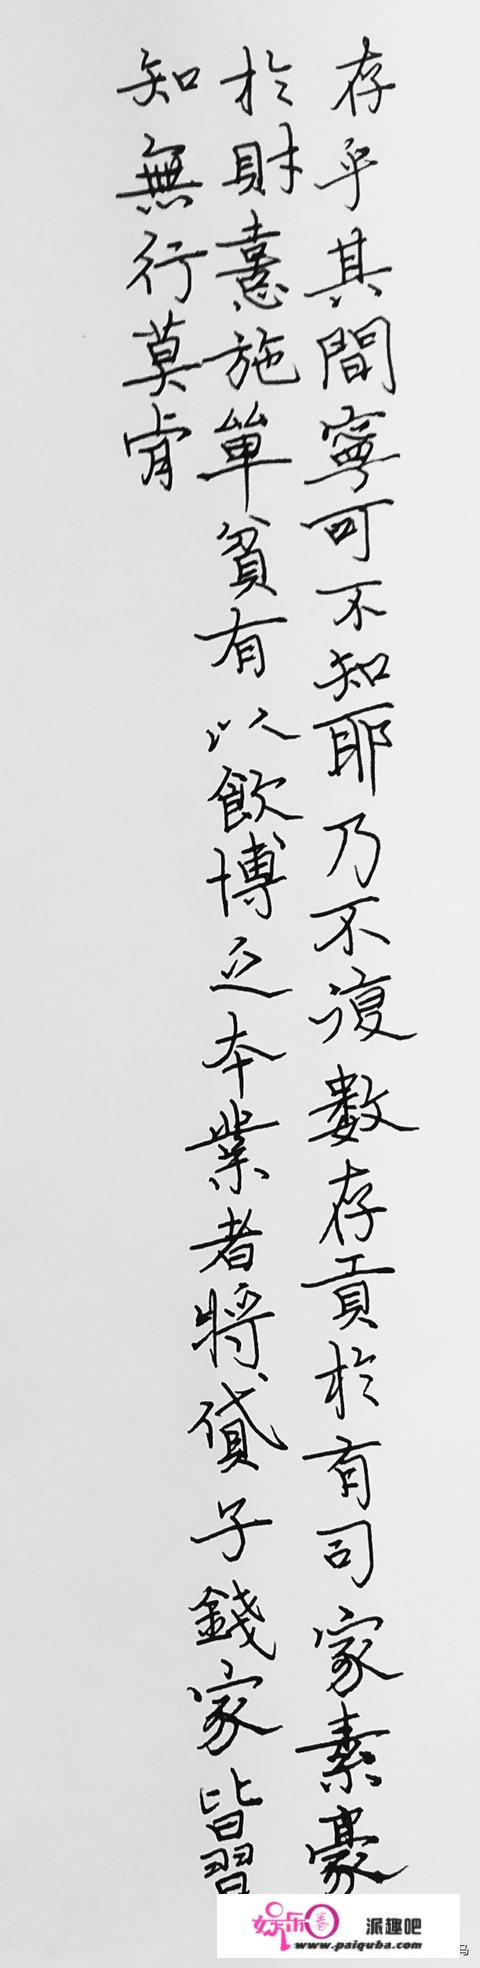 存乎其間寧可不知耶乃不復數存貢於有司家素豪
於財憙施單貧有以飲博亡本業者將貸子錢家皆習
知無行莫肯
娱乐卷
派趣吧
www.paiquba.com